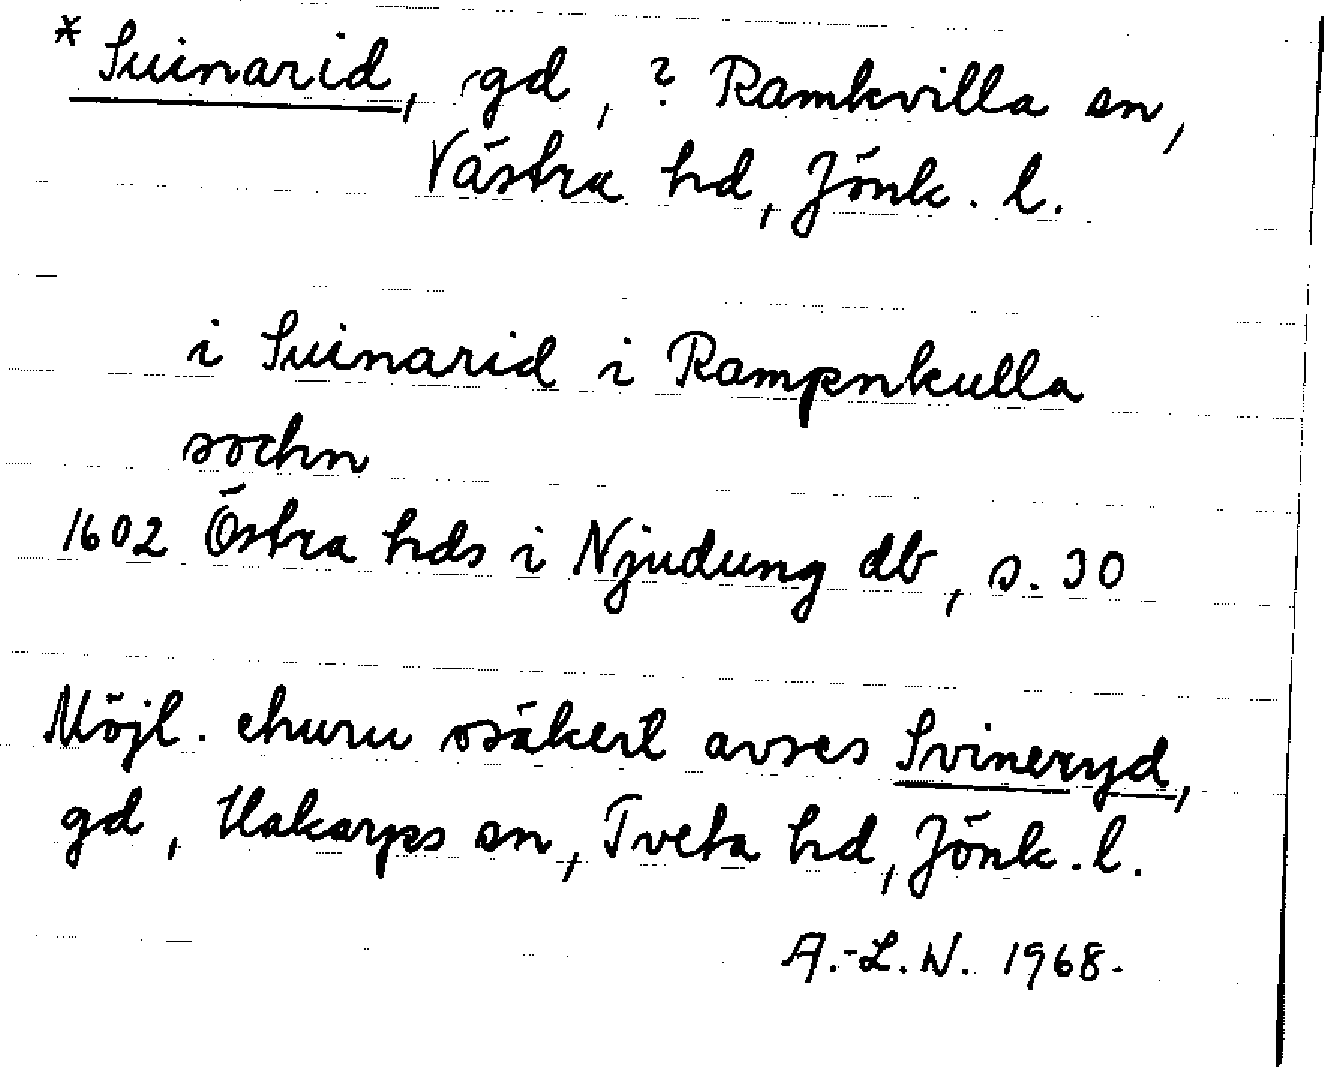 * Suinarid, gd, ? Ramkvilla sn,
Västra hd, Jönk. l.
i Suinarid i Rampnkulla
sochn
1602 Östra hds i Njudung db, s. 30
Möjl. ehuru osäkert avses Svineryd,
gd, Hakarps sn, Tveta hd, Jönk. l.
A.-L. N. 1968.